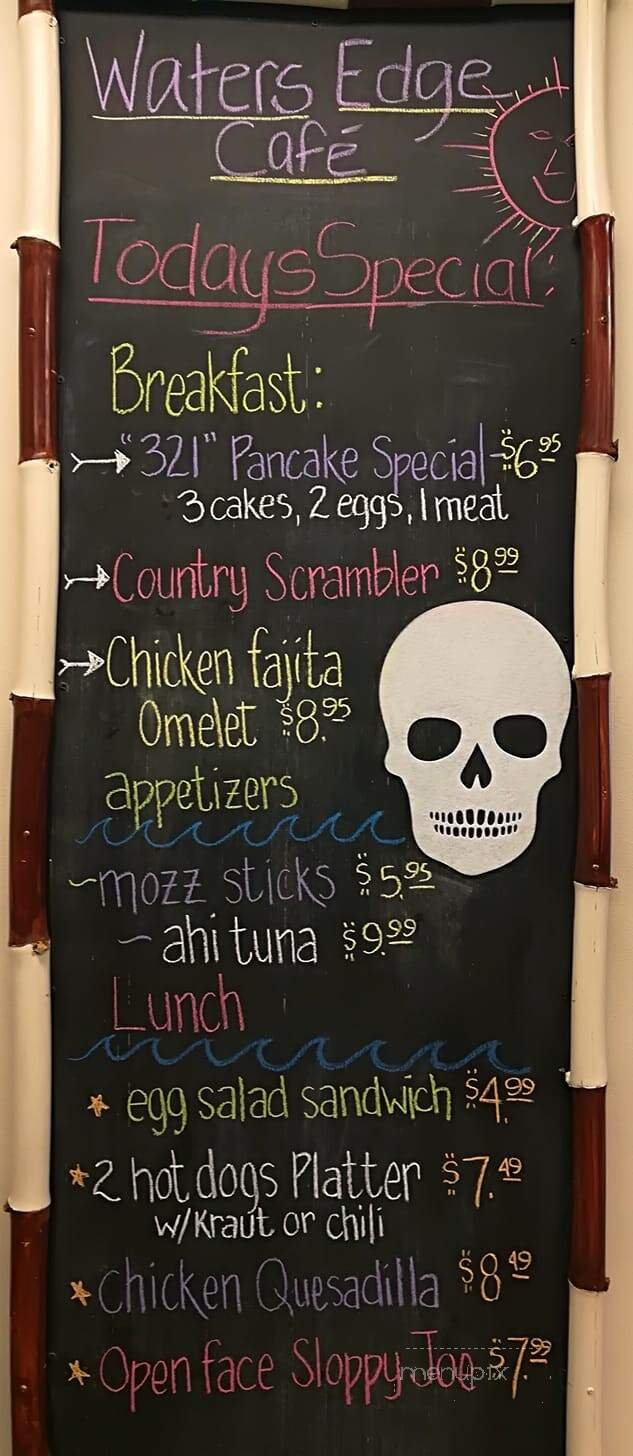 Waters Edge
Café
Todays Special:
Breakfast:
"321" Pancake Special - $6.95
3 cakes, 2 eggs, 1 meat
Country Scrambler $8.99
Chicken fajita
Omelet $8.95
appetizers
~mozz sticks $5.95
~ ahi tuna $9.99
Lunch
egg salad sandwich $4.99
2 hot dogs Platter $7.49
w/Kraut or chili
Chicken Quesadilla $8.49
Open face Sloppy Joe $7.99
menupix